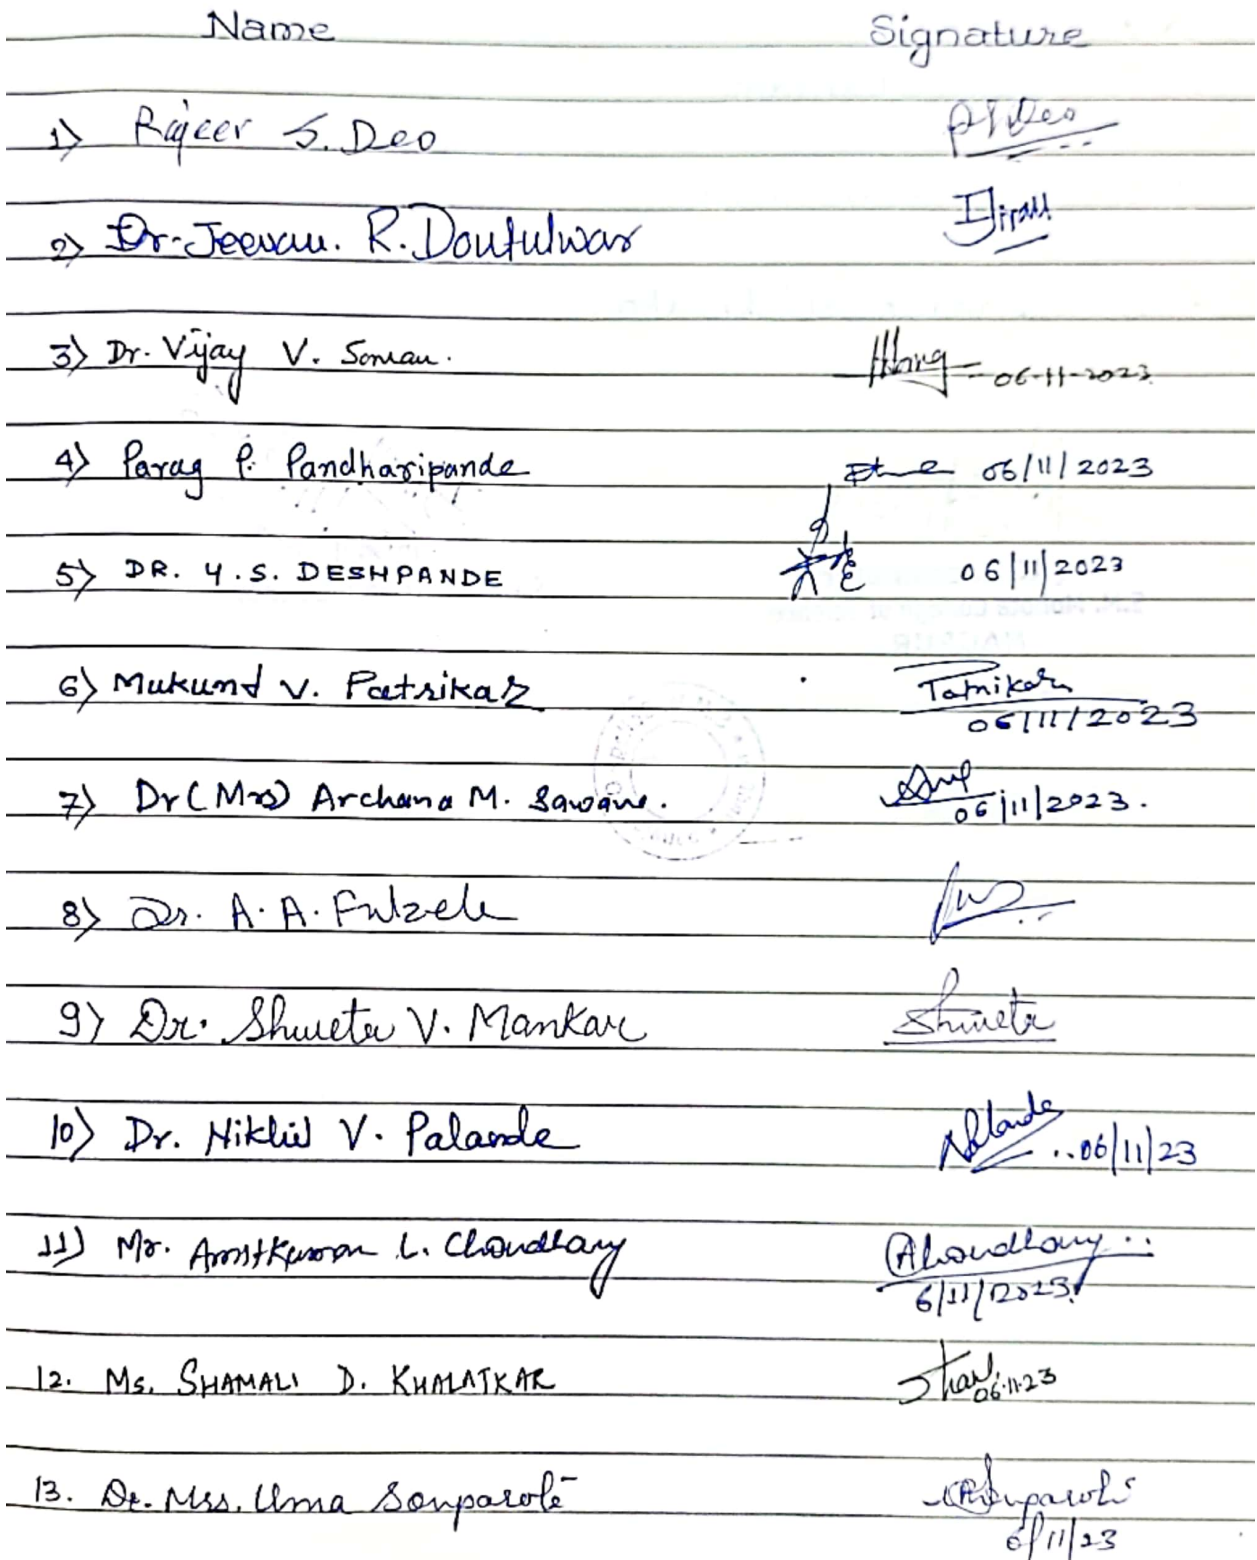 Name Signature
1) Rajeev S. Deo RSDeo
2) Dr. Jeevan. R. Dontulwar
3) Dr. Vijay V. Soman. 06-11-2023
4) Parag P. Pandharipande 06/11/2023
5) DR. Y. S. DESHPANDE 06/11/2023
6) Mukund V. Patrikar Patrikar
06/11/2023
7) Dr (Mrs) Archana M. Sawane.
06/11/2023.
8) Dr. A. A. Fulzele
9) Dr. Shweta V. Mankar Shweta
10) Dr. Nikhil V. Palande NPalande ..06/11/23
11) Mr. Amitkumar L. Choudhary AChoudhary..
6/11/2023
12. Ms. SHAMALI D. KHALATKAR 06.11.23
13. Dr. Mrs. Uma Sonparote
6/11/23